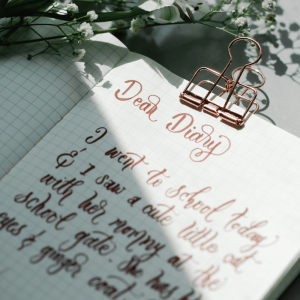 Dear Diary
I went to school today
& I saw a cute little cat
with her mommy at the
school gate. She has b
eyes & ginger coat